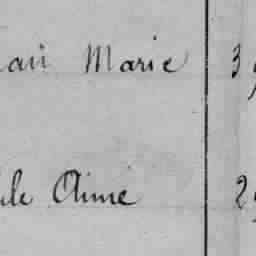 an Marie 3
le Aimé 2